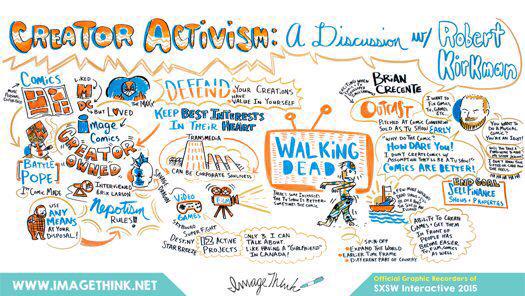 CREATOR ACTIVISM: A DISCUSSION w/ ROBERT KIRKMAN
COMICS
LIKED
M DC
BUT LOVED
image
COMICS
CREATOR OWNED
THE MAXX
BATTLE POPE!
1st COMIC MADE
INTERVIEWED
ERIK LARSON
USE
ANY
MEANS
AT YOUR
DISPOSAL!
NEPOTISM
RULES!!
DEFEND
YOUR CREATIONS
HAVE
VALUE IN YOURSELF
KEEP BEST INTERESTS
IN THEIR HEART
TRANSMEDIA
CAN BE CORPORATE SOULLESS
VIDEO
GAMES
FILM
SUPER FIGHT
DESTINY
STAR BREEZE
12 ACTIVE
PROJECTS
ONLY 3 I CAN
TALK ABOUT.
LIKE HAVING A "GIRLFRIEND"
IN CANADA!
WALKING
DEAD
THE TV SHOW IS BETTER
THE COMIC
SPIN OFF
EXPAND THE WORLD
EARLIER TIME FRAME
DIFFERENT PART OF COUNTRY
BRIAN
CRECENTE
OUTCAST
PITCHED AT COMIC CONVENTION
SOLD AS TV SHOW EARLY
WHY DO THE COMIC?
HOW DARE YOU!
I DON'T CREATE COMICS W/
ASSUMPTION THEY'LL BE A TV SHOW!
COMICS ARE BETTER!
I WANT TO
YOU WANT TO
DO A MUSICAL
COMIC?
YOU'RE AN IDIOT!
END GOAL
SELF FINANCE
SHOWS + PROPERTIES
ABILITY TO CREATE
GAMES + GET THEM
IN FRONT OF
PEOPLE HAS
BECOME EASIER.
AS WELL.
WWW.IMAGETHINK.NET
ImageThink
Official Graphic Recorders of
SXSW Interactive 2015